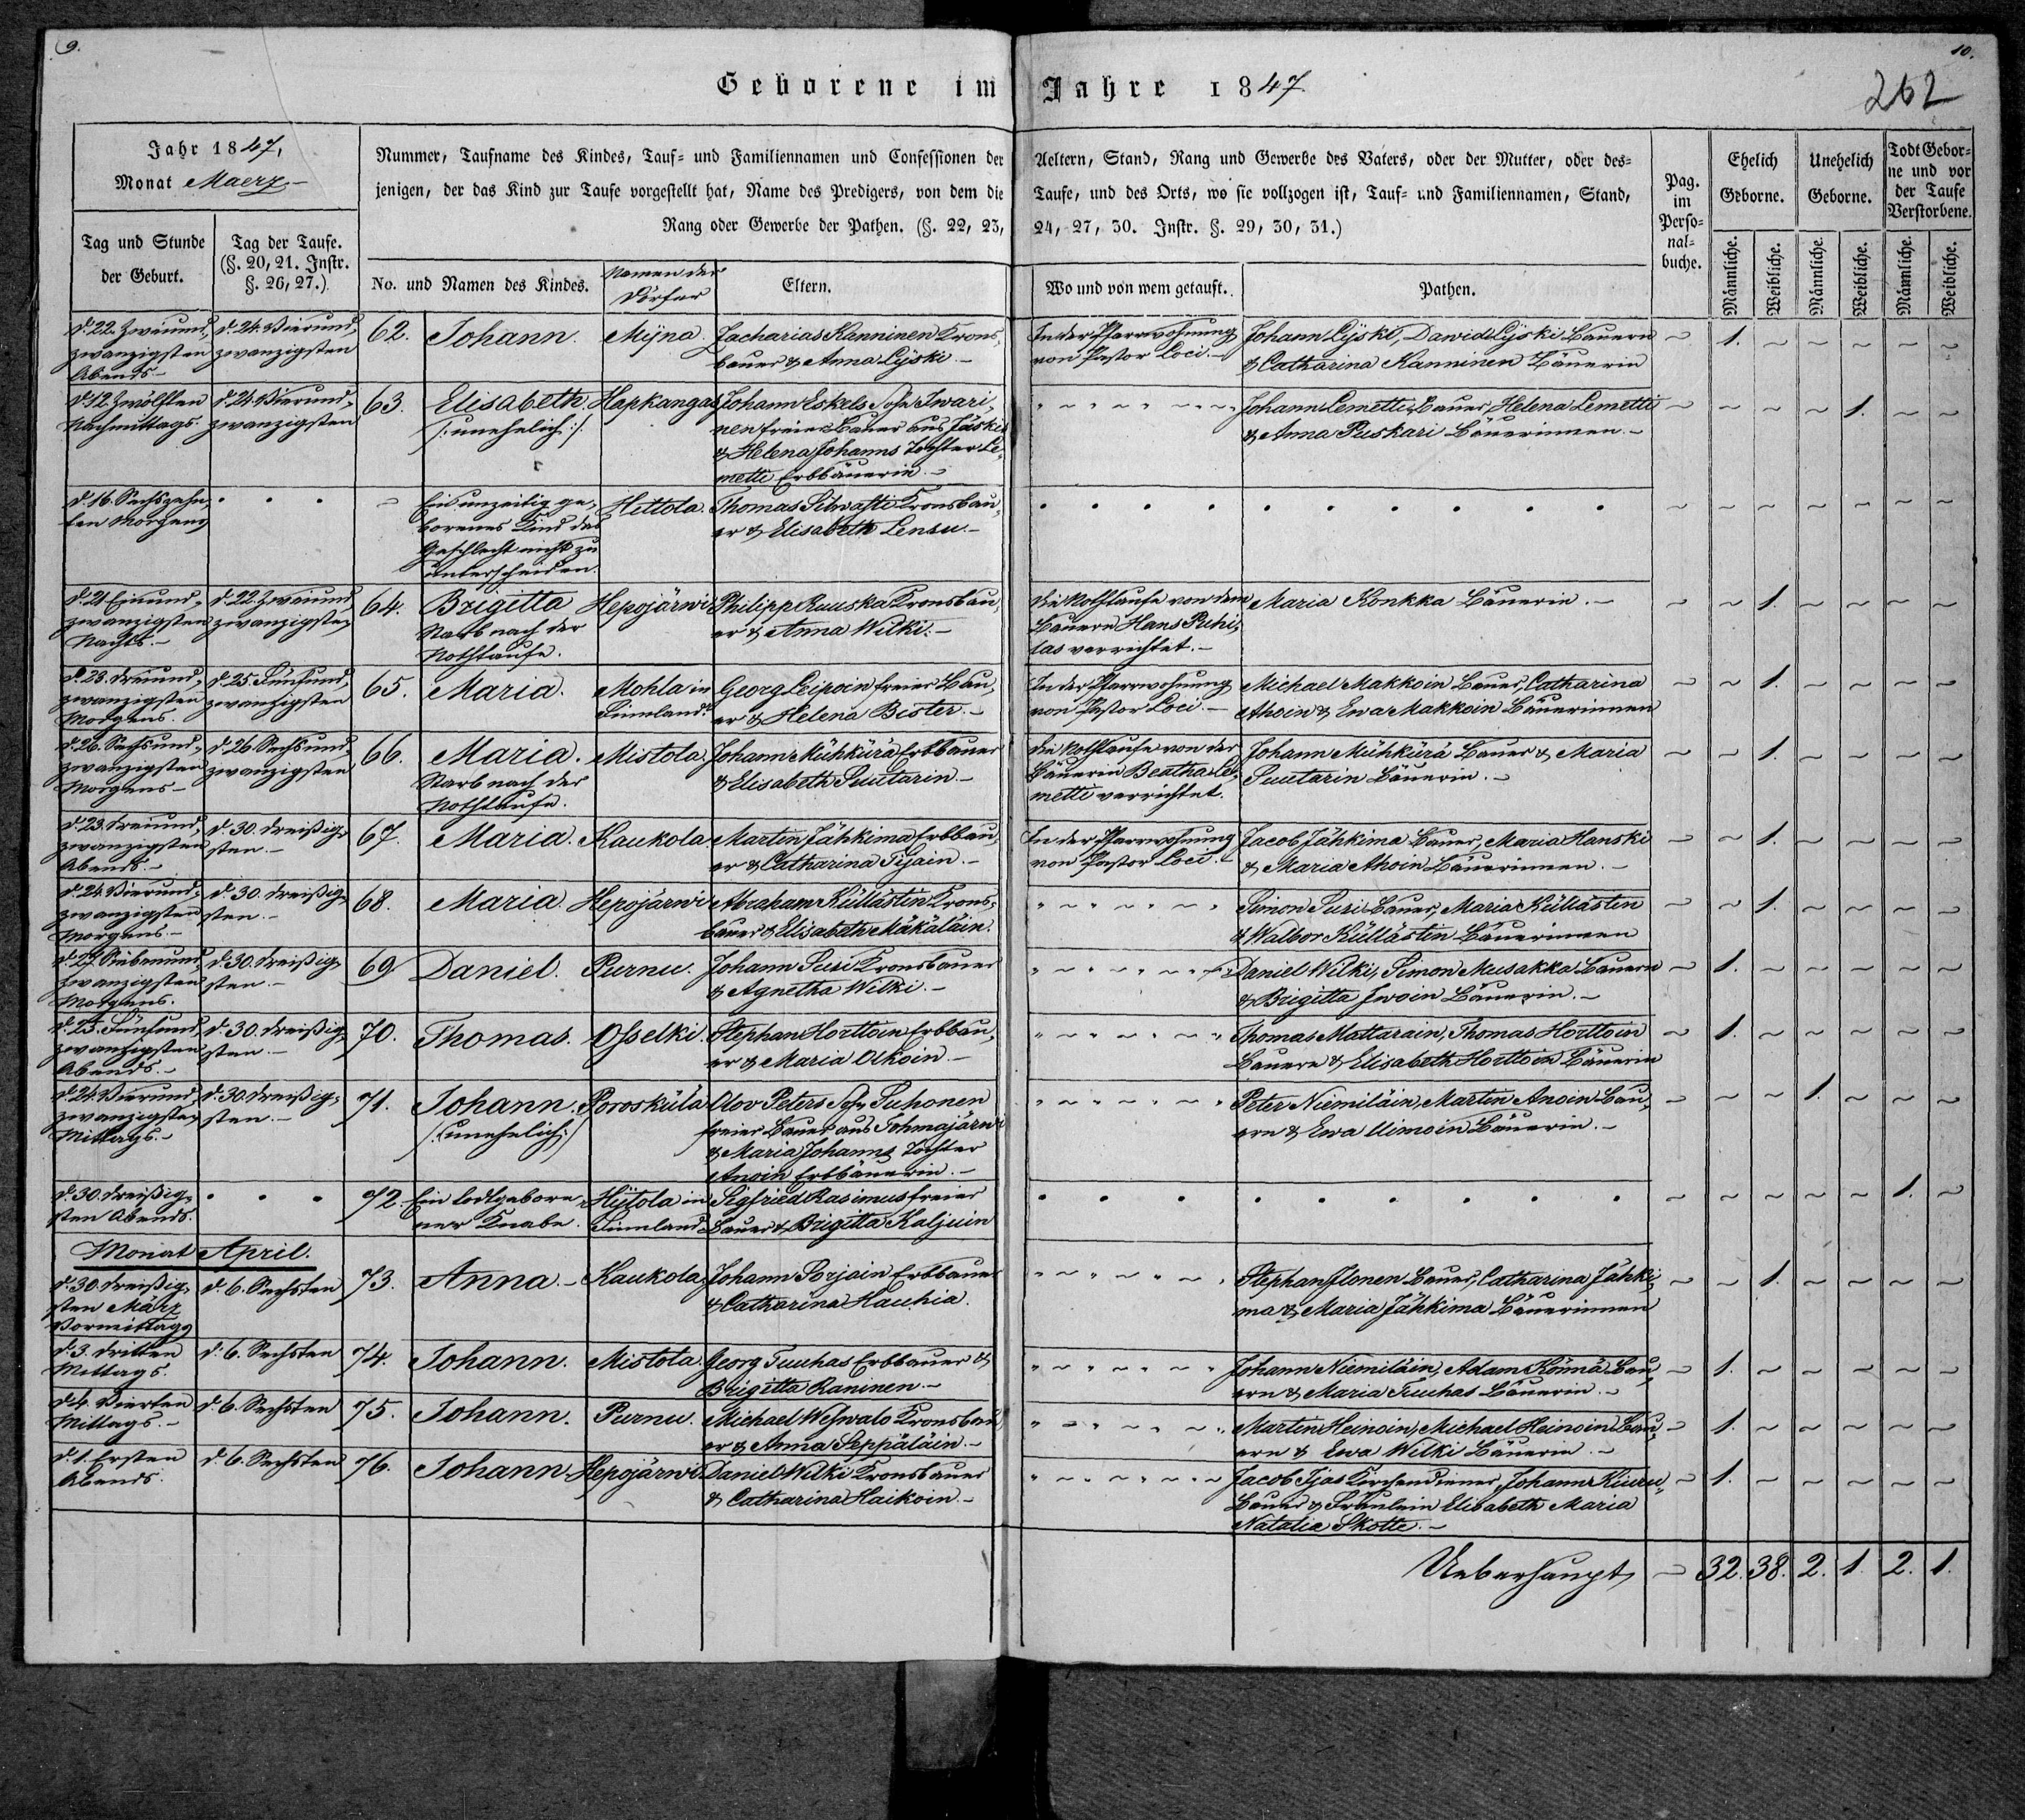 9.
10.
262
Geborene im Jahre 1847
Jahr 1847,
Monat Maerz.
Nummer, Taufname des Kindes, Tauf- und Familiennamen und Confessionen der Aeltern, Stand, Rang und Gewerbe des Vaters, oder der Mutter, oder des-
jenigen, der das Kind zur Taufe vorgestellt hat, Name des Predigers, von dem die Taufe, und des Orts, wo sie vollzogen ist, Tauf- und Familiennamen, Stand,
Rang oder Gewerbe der Pathen. (§. 22, 23, 24, 27, 30. Instr. §. 29, 30, 31.)
Pag. im Perso- nal- buche.
Ehelich Geborne.
Unehelich Geborne.
Todt Gebor- ne und vor der Taufe Verstorbene.
Tag und Stunde der Geburt.
Tag der Taufe. (§. 20, 21. Instr. §. 26, 27.)
No. und Namen des Kindes.
Namen der Dörfer
Eltern.
Wo und von wem getauft.
Pathen.
Männliche. Weibliche. Männliche. Weibliche. Männliche. Weibliche.
d. 22. Zweiund- zwanzigsten Abends
d. 24. Vierund- zwanzigsten
62. Johann. Mÿna.
Zacharias Kanninen Krons-
bauer & Anna Lÿski.
In der Pfarrwohnung
von Pastor Loci.
Johann Lÿski, Dawid Lÿski Bauern
& Catharina Kanninen Bäuerin
1.
d. 12. Zwölften Nachmittags.
d. 24. Vierund- zwanzigsten
63. Elisabeth. Hapkangas
/: unehelich :/
Johann Eskels Sohn Iwari-
nen freier Bauer aus Jäskis
& Helena Johanns Tochter Le-
metti Erbbäuerin.
Johann Lemetti Bauer, Helena Lemetti
& Anna Puskari Bäuerinnen.
1.
d. 16. Sechszehn- ten Morgens
Ein unzeitig ge-
borenes Kind das
Geschlecht nicht zu
unterscheiden.
Hettola.
Thomas Silwasti Kronsbau-
er & Elisabeth Lensu.
d. 21. Einund- zwanzigsten Nachts.
d. 22. Zweiund- zwanzigsten
64. Brigitta Hepojärwi
Starb nach der
Nothtaufe.
Philipp Ruuska Kronsbau-
er & Anna Wilki.
Die Nothtaufe von dem
Bauern Hans Puhi-
las verrichtet.
Maria Konkka Bäuerin.
1.
d. 23. Dreiund- zwanzigsten Morgens.
d. 25. Fünfund- zwanzigsten
65. Maria. Mohla in
Finnland.
Georg Leipoin freier Bau-
er & Helena Bister.
In der Pfarrwohnung
von Pastor Loci.
Michael Makkoin Bauer, Catharina
Ahoin & Ewa Makkoin Bäuerinnen
1.
d. 26. Sechsund- zwanzigsten Morgens
d. 26. Sechsund- zwanzigsten
66. Maria. Mistola.
Starb nach der
Nothtaufe.
Johann Mühkürä Erbbauer
& Elisabeth Suutarin.
Die Nothtaufe von der
Bäuerin Beatha Le-
metti verrichtet.
Johann Mühkürä Bauer & Maria
Suutarin Bäuerin.
1.
d. 23. Dreiund- zwanzigsten Abends.
d. 30. Dreißig- sten.
67. Maria. Kaukola
Martin Jähkimä Erbbau-
er & Catharina Tijain.
In der Pfarrwohnung
von Pastor Loci.
Jacob Jähkima Bauer, Maria Hanski
& Maria Ahoin Bäuerinnen.
1.
d. 24. Vierund- zwanzigsten Morgens.
d. 30. Dreißig- sten.
68. Maria. Hepojärwi
Abraham Küllästin Krons-
bauer & Elisabeth Mäkäläin.
Simon Susi Bauer, Maria Küllästen
& Walbor Küllästin Bäuerinnen
1.
d. 27. Siebenund- zwanzigsten Morgens.
d. 30. Dreißig- sten.
69. Daniel. Purnu.
Johann Susi Kronsbauer
& Agnetha Wilki.
Daniel Wilki, Simon Musakka Bauern
& Brigitta Iwoin Bäuerin.
1.
d. 25. Fünfund- zwanzigsten Abends.
d. 30. Dreißig- sten.
70. Thomas. Osselki.
Stephan Horttoin Erbbau-
er & Maria Olkoin.
Thomas Mattarain, Thomas Horttoin
Bauern & Elisabeth Horttoin Bäuerin
1.
d. 24. Vierund- zwanzigsten Mittags.
d. 30. Dreißig- sten.
71. Johann. Porosküla
/: unehelich :/
Olov Peters Sohn Suhonen
freier Bauer aus Tohmajärwi
& Maria Johanns Tochter
Anoin Erbbäuerin.
Peter Niemiläin, Martin Anoin Bau-
ern & Ewa Uimoin Bäuerin.
1.
d. 30. Dreißig- sten Abends.
72. Ein todtgebore-
ner Knabe.
Hÿtola in
Finnland
Sigfried Rasimus freier
Bauer & Brigitta Kaljuin
1.
Monat April.
d. 30. Dreißig- sten März Vormittags
d. 6. Sechsten
73. Anna. Kaukola
Johann Sorjain Erbbauer
& Catharina Hauhia.
Stephan Ilonen Bauer, Catharina Jähki-
ma & Maria Jähkima Bäuerinnen
1.
d. 3. Dritten Mittags.
d. 6. Sechsten
74. Johann. Mistola.
Georg Tuuhas Erbbauer &
Brigitta Raninen.
Johann Niemiläin, Adam Könnä Bau-
ern & Maria Tuuhas Bäuerin.
1.
d. 4. Vierten Mittags.
d. 6. Sechsten
75. Johann. Purnu.
Michael Weswalo Kronsbau-
er & Anna Seppäläin.
Martin Heinoin, Michael Heinoin Bau-
ern & Ewa Wilki Bäuerin.
1.
d. 1. Ersten Abends.
d. 6. Sechsten
76. Johann. Hepojärwi
Daniel Wilki Kronsbauer
& Catharina Haikoin.
Jacob Ijas Kirchendiener, Johann Kiuru
Bauer & Fräulein Elisabeth Maria
Natalia Skotte.
1.
Ueberhaupt 32. 38. 2. 1. 2. 1.